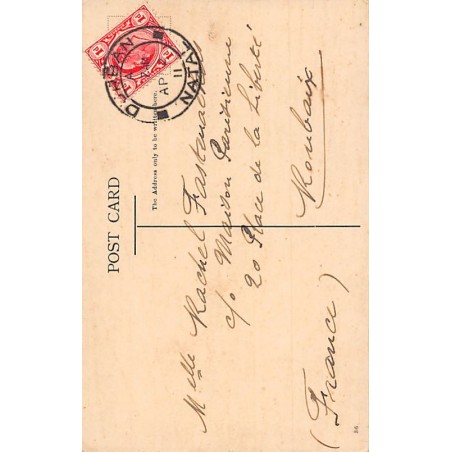 POST CARD
The Address only to be written here.
DURBAN
AP 11
NATAL
Melle Rachel
c/o Maison Parisienne
20 Place de la Liberté
Roubaix
(France)